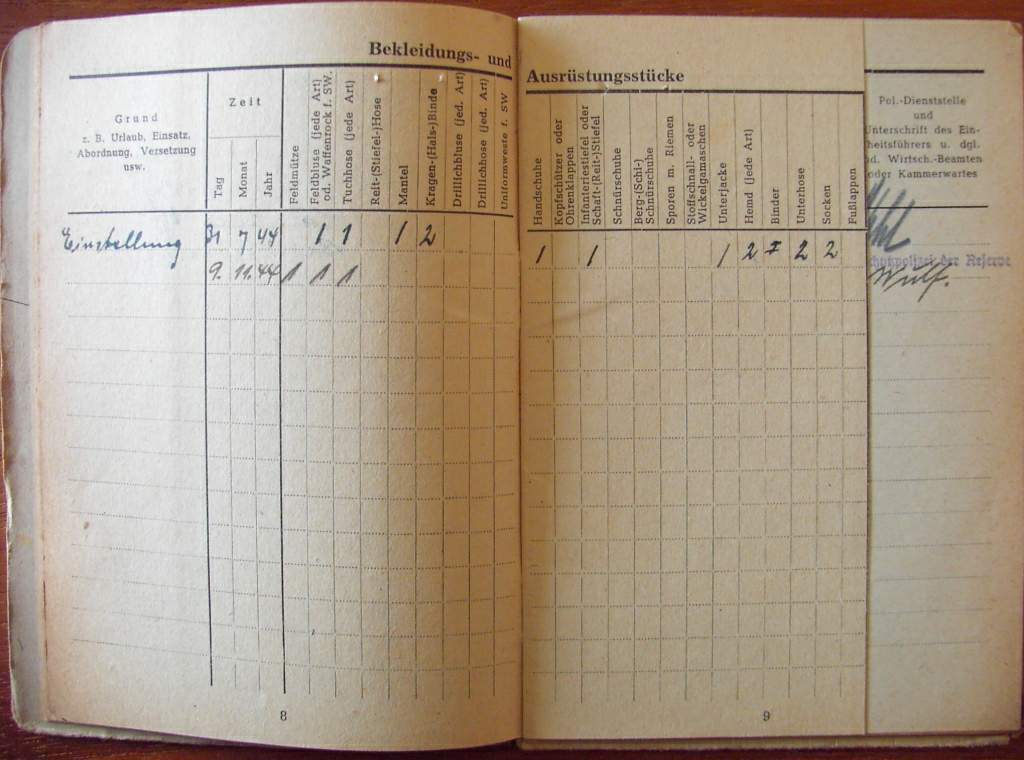 Bekleidungs- und
Ausrüstungsstücke
Grund
z. B. Urlaub, Einsatz,
Abordnung, Versetzung
usw.
Zeit
Tag
Monat
Jahr
Feldmütze
Feldbluse (jede Art)
od. Waffenrock f. SW.
Tuchhose (jede Art)
Reit-(Stiefel-)Hose
Mantel
Kragen-(Hals-)Binde
Drillichbluse (jed. Art)
Drillichhose (jed. Art)
Uniformweste f. SW
Handschuhe
Kopfschützer oder
Ohrenklappen
Infanteriestiefel oder
Schaft-(Reit-)Stiefel
Schnürschuhe
Berg-(Schi-)
Schnürschuhe
Sporen m. Riemen
Stoffschnall- oder
Wickelgamaschen
Unterjacke
Hemd (jede Art)
Binder
Unterhose
Socken
Fußlappen
Pol.-Dienststelle
und
Unterschrift des Ein-
heitsführers u. dgl.
od. Wirtsch.-Beamten
oder Kammerwartes
Einstellung 31 7 44 1 1 1 2 1 1 1 2 I 2 2
der Reserve
9. 11. 44 1 1 1 Wulf.
8
9